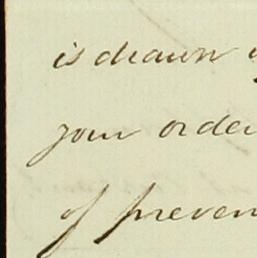 is drawn
your order
of preven